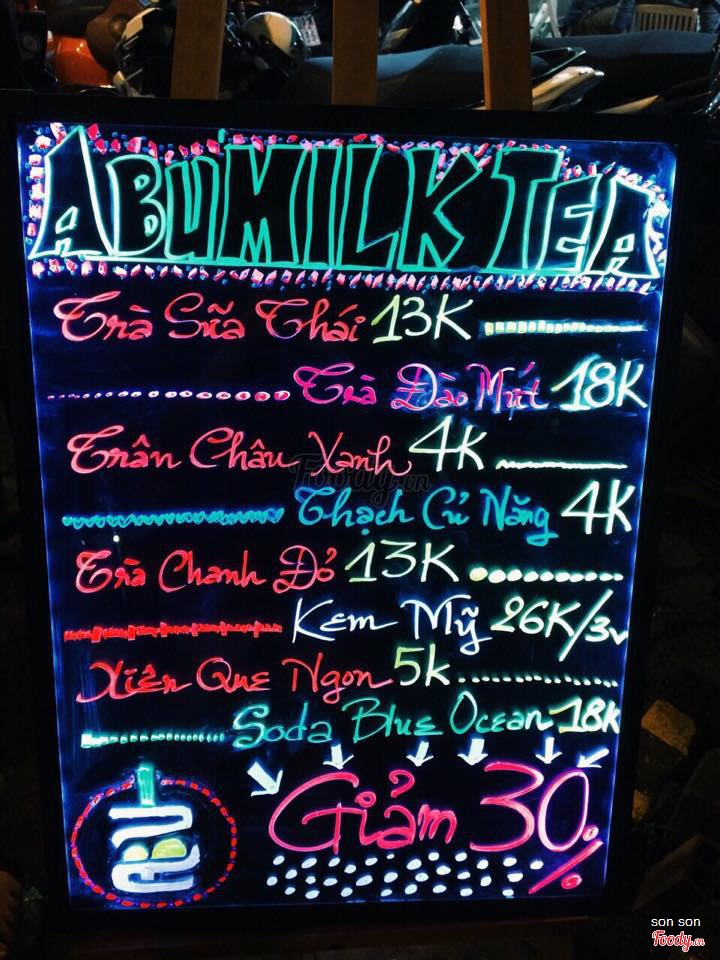 ABU MILK TEA
Trà Sữa Thái 13K
Trà Đào Mứt 18K
Trân Châu Xanh 4K
Foody.vn
Thạch Củ Năng 4K
Trà Chanh Đỏ 13K
Kem Mỹ 26K/3v
Xiên Que Ngon 5k
Soda Blue Ocean 18K
Giảm 30%
ABU
son son
Foody.vn